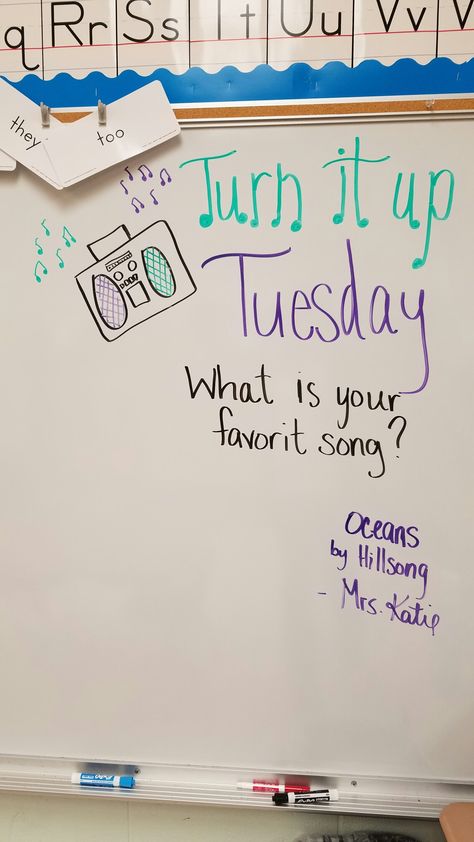 q Rr Ss Tt Uu Vv W
they
too
Turn it up
Tuesday
What is your
favorit song?
Oceans
by Hillsong
- Mrs. Katie